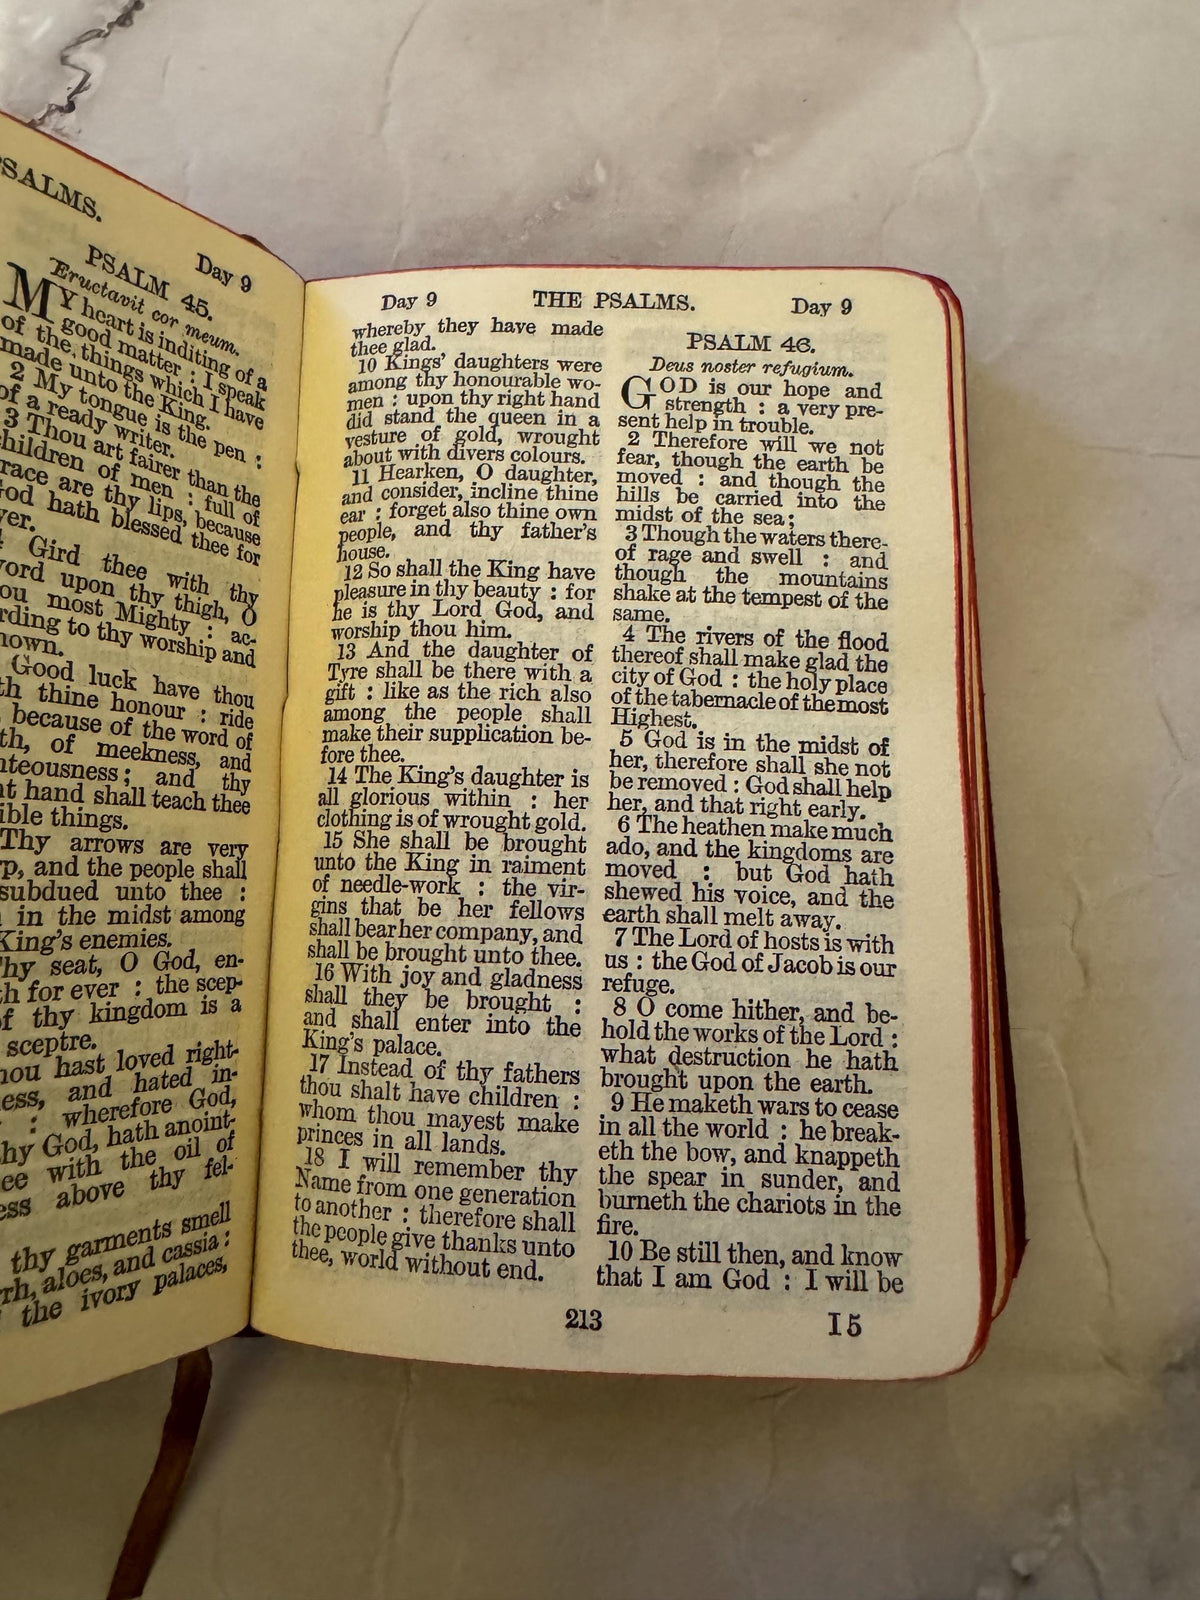 PSALMS.
PSALM 45. Day 9
Eructavit cor meum.
MY heart is inditing of a
good matter : I speak
of the things which I have
made unto the King.
2 My tongue is the pen :
of a ready writer.
3 Thou art fairer than the
children of men : full of
are thy lips, because
God hath blessed thee for
Gird thee with thy
upon thy thigh, O
most Mighty : ac-
to thy worship and
Good luck have thou
thine honour : ride
because of the word of
of meekness, and
and thy
hand shall teach thee
things.
Thy arrows are very
and the people shall
subdued unto thee :
in the midst among
King's enemies.
seat, O God, en-
for ever : the scep-
of thy kingdom is a
sceptre.
hast loved right-
and hated in-
: wherefore God,
thy God, hath anoint-
with the oil of
above thy fel-
thy garments smell
aloes, and cassia :
the ivory palaces,
Day 9 THE PSALMS. Day 9
whereby they have made
thee glad.
10 Kings' daughters were
among thy honourable wo-
men : upon thy right hand
did stand the queen in a
vesture of gold, wrought
about with divers colours.
11 Hearken, O daughter,
and consider, incline thine
ear : forget also thine own
people, and thy father's
house.
12 So shall the King have
pleasure in thy beauty : for
he is thy Lord God, and
worship thou him.
13 And the daughter of
Tyre shall be there with a
gift : like as the rich also
among the people shall
make their supplication be-
fore thee.
14 The King's daughter is
all glorious within : her
clothing is of wrought gold.
15 She shall be brought
unto the King in raiment
of needle-work : the vir-
gins that be her fellows
shall bear her company, and
shall be brought unto thee.
16 With joy and gladness
shall they be brought :
and shall enter into the
King's palace.
17 Instead of thy fathers
thou shalt have children :
whom thou mayest make
princes in all lands.
18 I will remember thy
Name from one generation
to another : therefore shall
the people give thanks unto
thee, world without end.
PSALM 46.
Deus noster refugium.
GOD is our hope and
strength : a very pre-
sent help in trouble.
2 Therefore will we not
fear, though the earth be
moved : and though the
hills be carried into the
midst of the sea;
3 Though the waters there-
of rage and swell : and
though the mountains
shake at the tempest of the
same.
4 The rivers of the flood
thereof shall make glad the
city of God : the holy place
of the tabernacle of the most
Highest.
5 God is in the midst of
her, therefore shall she not
be removed : God shall help
her, and that right early.
6 The heathen make much
ado, and the kingdoms are
moved : but God hath
shewed his voice, and the
earth shall melt away.
7 The Lord of hosts is with
us : the God of Jacob is our
refuge.
8 O come hither, and be-
hold the works of the Lord :
what destruction he hath
brought upon the earth.
9 He maketh wars to cease
in all the world : he break-
eth the bow, and knappeth
the spear in sunder, and
burneth the chariots in the
fire.
10 Be still then, and know
that I am God : I will be
213 I 5